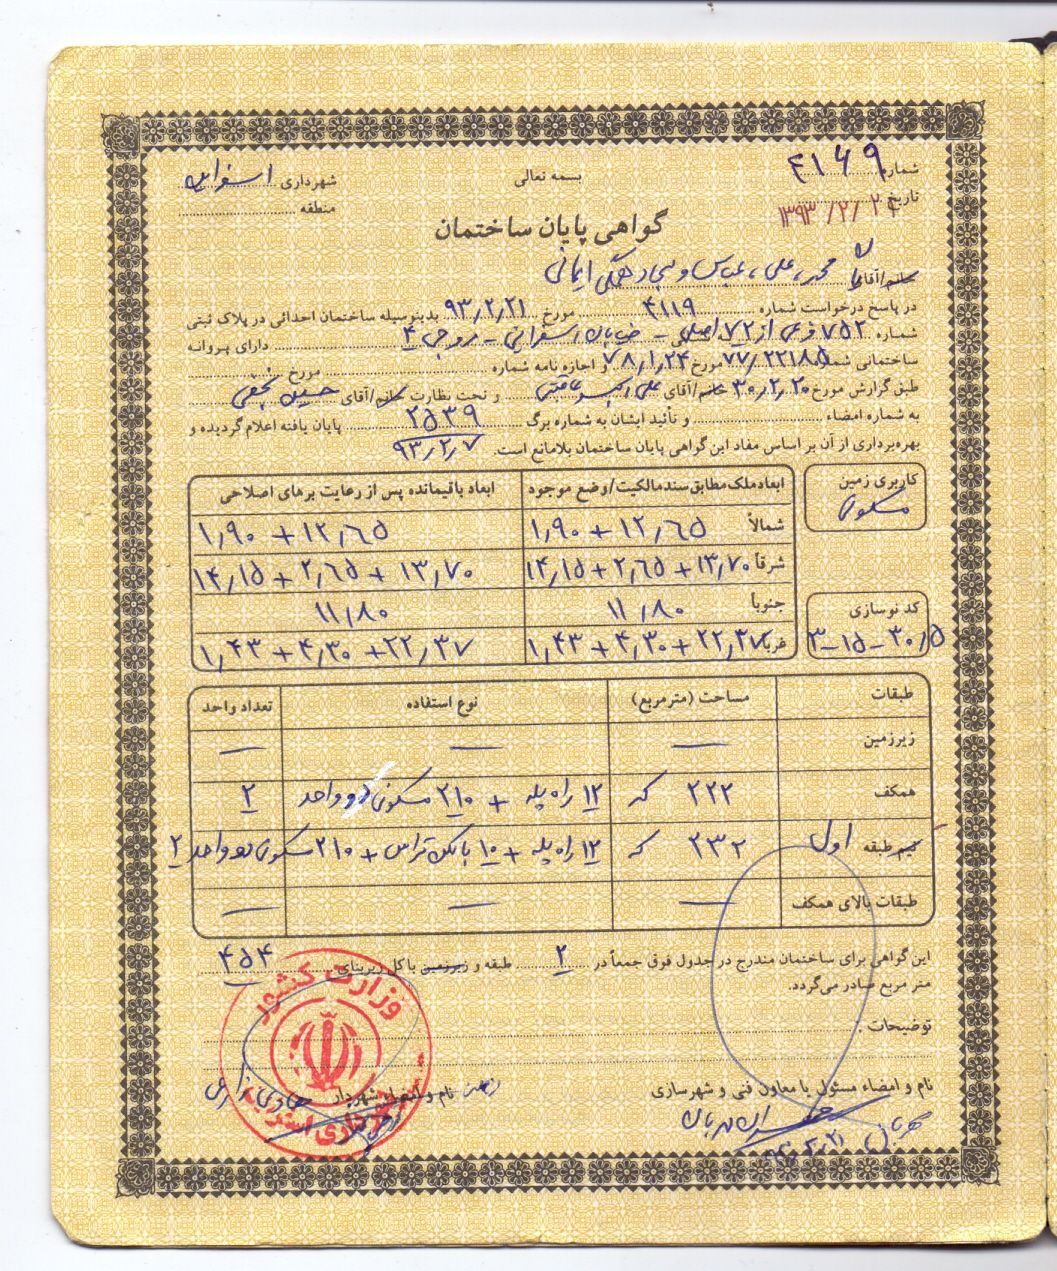 شماره ۴۱۶۹
بسمه تعالی
شهرداری اسفراین
تاریخ ۱۳۹۳/۲/۲۱
منطقه
گواهی پایان ساختمان
خانم/آقای محمد، علی، عباس و همگی ایمانی
در پاسخ درخواست شماره ۴۱۱۹ مورخ ۹۳٫۲٫۲۱ بدینوسیله ساختمان احداثی در پلاک ثبتی
شماره ۷۵۲ فرعی از ۷۲ اصلی - خیابان اسفراینی - ۴ دارای پروانه
ساختمانی شماره ۷۷٫۲۲۱۸۵ مورخ ۷۸٫۱٫۲۴ و اجازه نامه شماره مورخ
طبق گزارش مورخ ۳۰٫۲٫۲۰ خانم/آقای علی و تحت نظارت خانم/آقای حسین نجفی
به شماره امضاء و تأئید ایشان به شماره برگ ۲۵۳۹ پایان یافته اعلام گردیده و
۹۳٫۲٫۷
بهره‌برداری از آن بر اساس مفاد این گواهی پایان ساختمان بلامانع است.
کاربری زمین
مسکونی
ابعاد ملک مطابق سند مالکیت/وضع موجود ابعاد باقیمانده پس از رعایت برهای اصلاحی
شمالاً ۱۲٫۶۵ + ۱٫۹۰ ۱۲٫۶۵ + ۱٫۹۰
شرقاً ۱۳٫۷۰ + ۲٫۶۵ + ۱۴٫۱۵ ۱۳٫۷۰ + ۲٫۶۵ + ۱۴٫۱۵
جنوبا ۱۱٫۸۰ ۱۱٫۸۰
غربا ۲۲٫۳۷ + ۴٫۳۰ + ۱٫۴۳ ۲۲٫۳۷ + ۴٫۳۰ + ۱٫۴۳
کد نوسازی
۳-۱۵-۳۰٫۵
طبقات مساحت (مترمربع) نوع استفاده تعداد واحد
زیرزمین — — —
همکف ۲۲۲ که ۱۲ راه پله + ۲۱۰ مسکونی دو واحد ۲
نیم طبقه اول ۲۳۲ که ۱۲ راه پله + ۱۰ بالکن تراس + ۲۱۰ مسکونی دو واحد ۲
طبقات بالای همکف — — —
این گواهی برای ساختمان مندرج در جدول فوق جمعاً در ۲ طبقه و زیرزمین با کل زیربنای ۴۵۴
متر مربع صادر می‌گردد.
توضیحات :
نام و امضاء مسئول یا معاون فنی و شهرسازی
نام و امضاء شهردار
وزارت کشور
شهرداری اسفراین